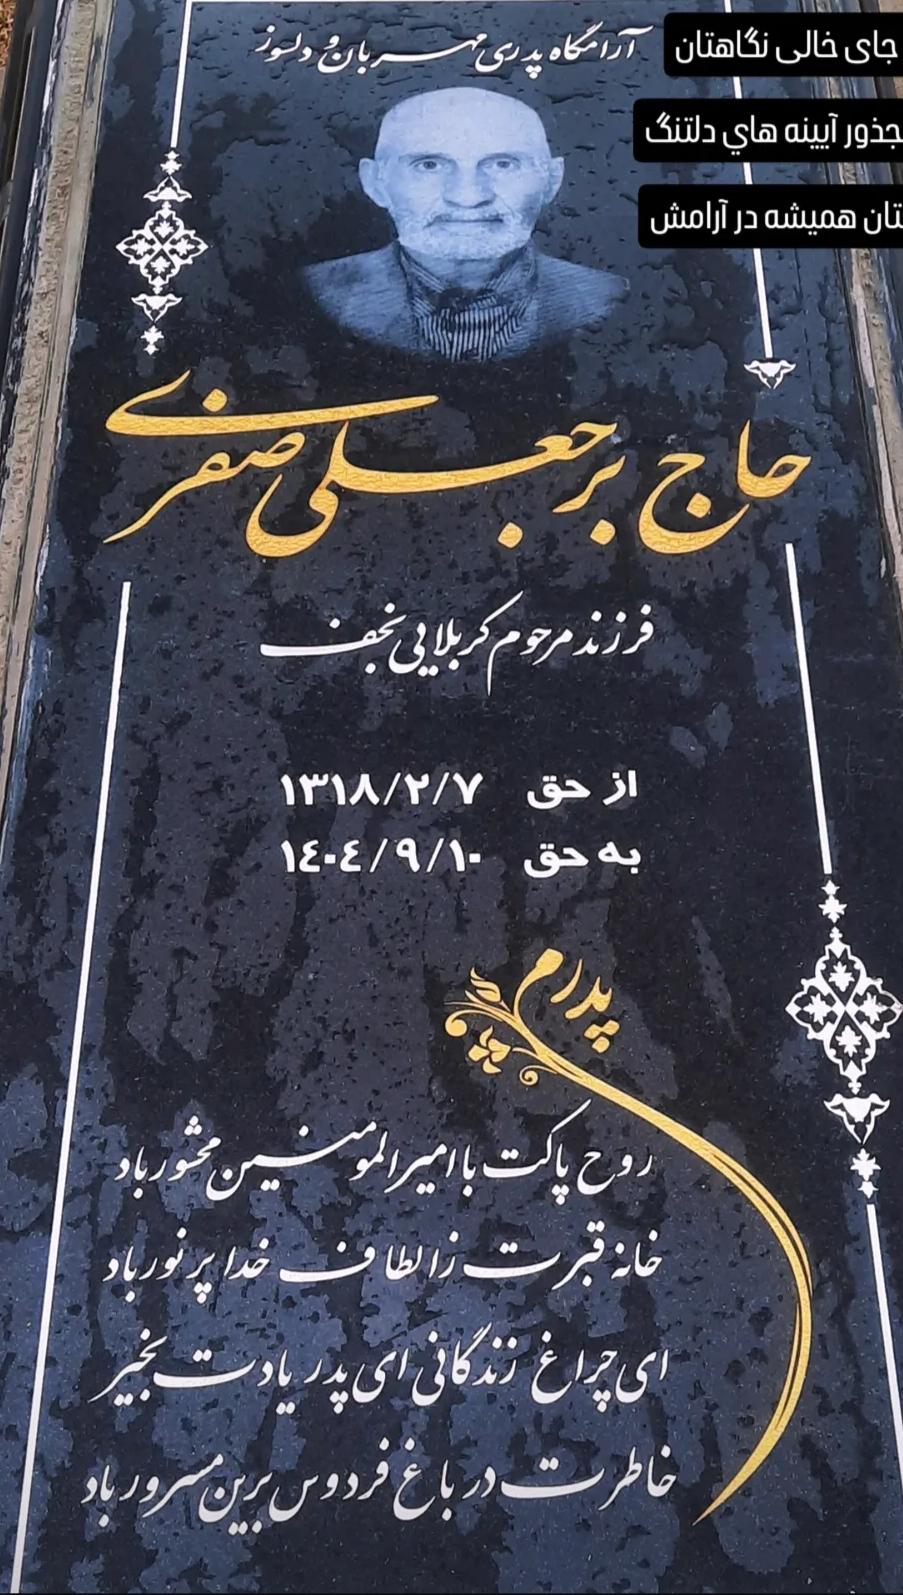 جای خالی نگاهتان
مجذور آیینه هاي دلتنگ
تان همیشه در آرامش
آرامگاه پدری مهربان و دلسوز
حاج برجعلی صفری
فرزند مرحوم کربلایی نجف
از حق ۱۳۱۸/۲/۷
به حق ۱٤۰٤/۹/۱۰
پدرم
روح پاکت با امیرالمومنین محشور باد
خانه قبرت ز الطاف خدا پر نور باد
ای چراغ زندگانی ای پدر یادت بخیر
خاطرت در باغ فردوس برین مسرور باد